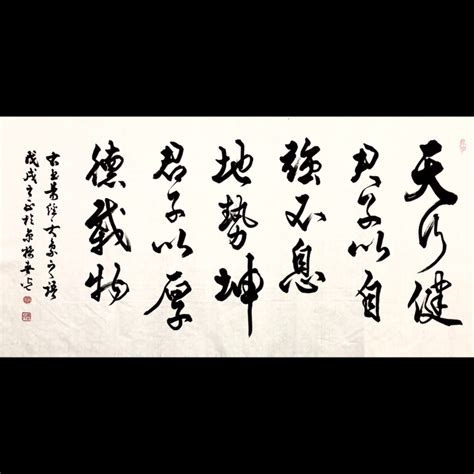 天行健
君子以自
強不息
地勢坤
君子以厚
德載物
大象之語
戊戌